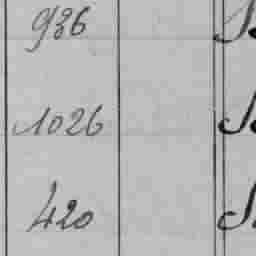 936
1026
420